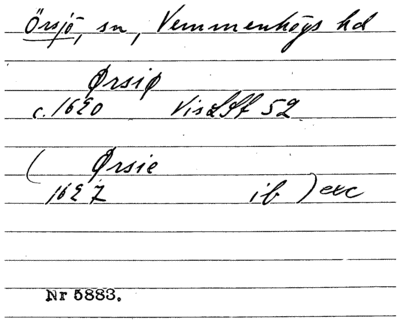 Örsjö, sn, Vemmenhögs hd
Ørsiø
c. 1620 VisLSt 52
( Ørsie
1627 ib ) exc
Nr 5883.